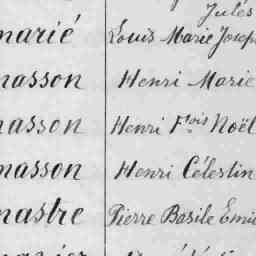 Jules
marié Louis Marie Joseph
masson Henri Marie
masson Henri Fçois Noël
masson Henri Célestin
mastre Pierre Basile Emi